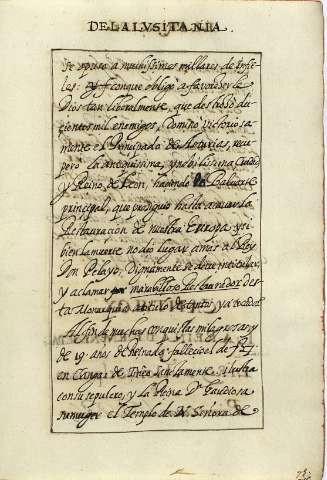 DE LA LVSITANIA.
se opuso a muchissimos millares de Infie-
les: y con que obligò a favorecerle
Dios tan liberalmente, que destruìdo du-
cientos mil enemigos, Dominò victoriosa-
mente el Principado de Asturias, recu-
però la antiquissima, y nobilissima Ciudad
y Reino de Leon, haziendo Baluarte
principal, que prosiguio hasta
Restauracion de nuestra Europa y si
bien la muerte no diò lugar a mas al Rey
Don Pelayo, Dignamente se deve intitular,
y aclamar por marabilloso Restaurador des-
ta Monarquia
Al fin de muchas conquistas milagrosas y
de 19. años de Reinado, fallecio el de 737
en Cangas de Onis Santamente. ilustra
con su sepulcro, y la Reina Dª Gaudiosa
su muger el Templo de N. Señora de